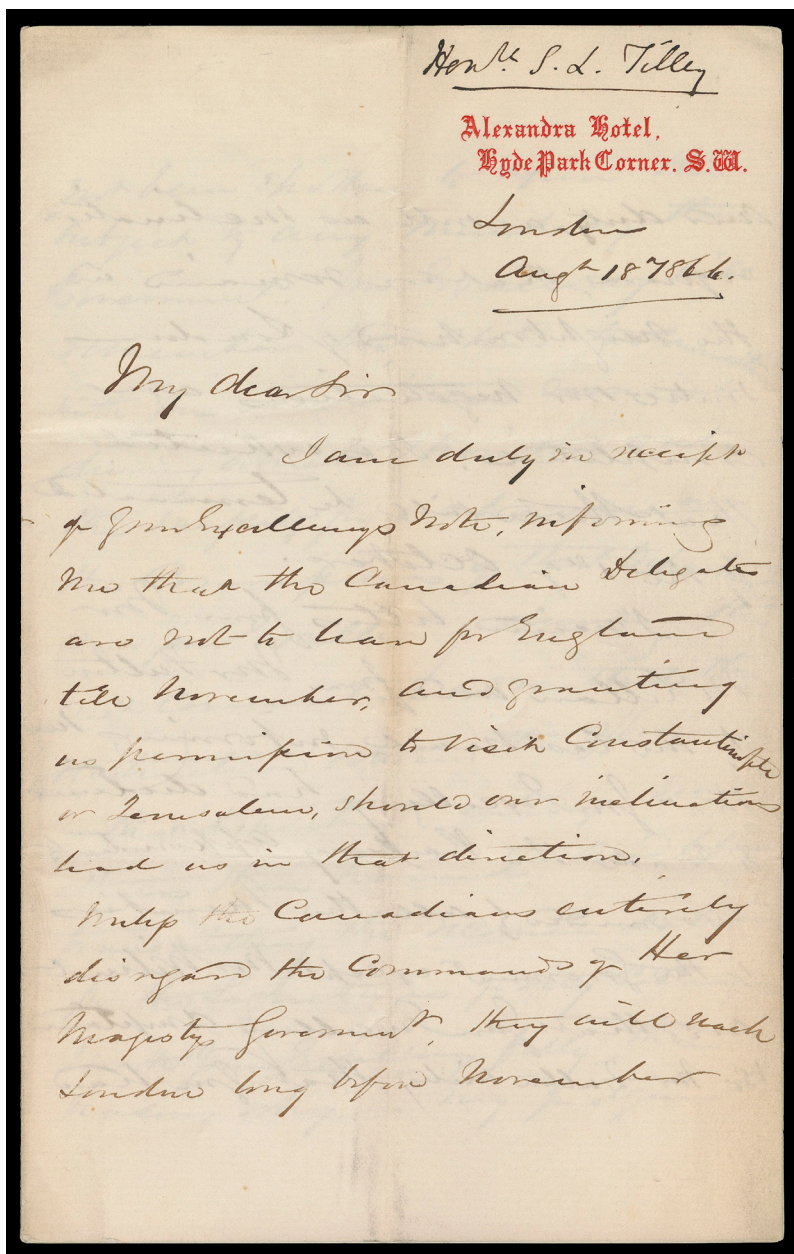 Honble S. L. Tilley
Alexandra Hotel,
Hyde Park Corner. S.W.
London
Augt 18 1866.
My dear Sir
I am duly in receipt
of your Excellency's Note, informing
me that the Canadian Delegates
are not to leave for England
till November, and granting
us permission to visit Constantinople
or Jerusalem, should our inclinations
lead us in that direction.
Unless the Canadians entirely
disregard the Commands of Her
Majestys Goverment, they will reach
London long before November